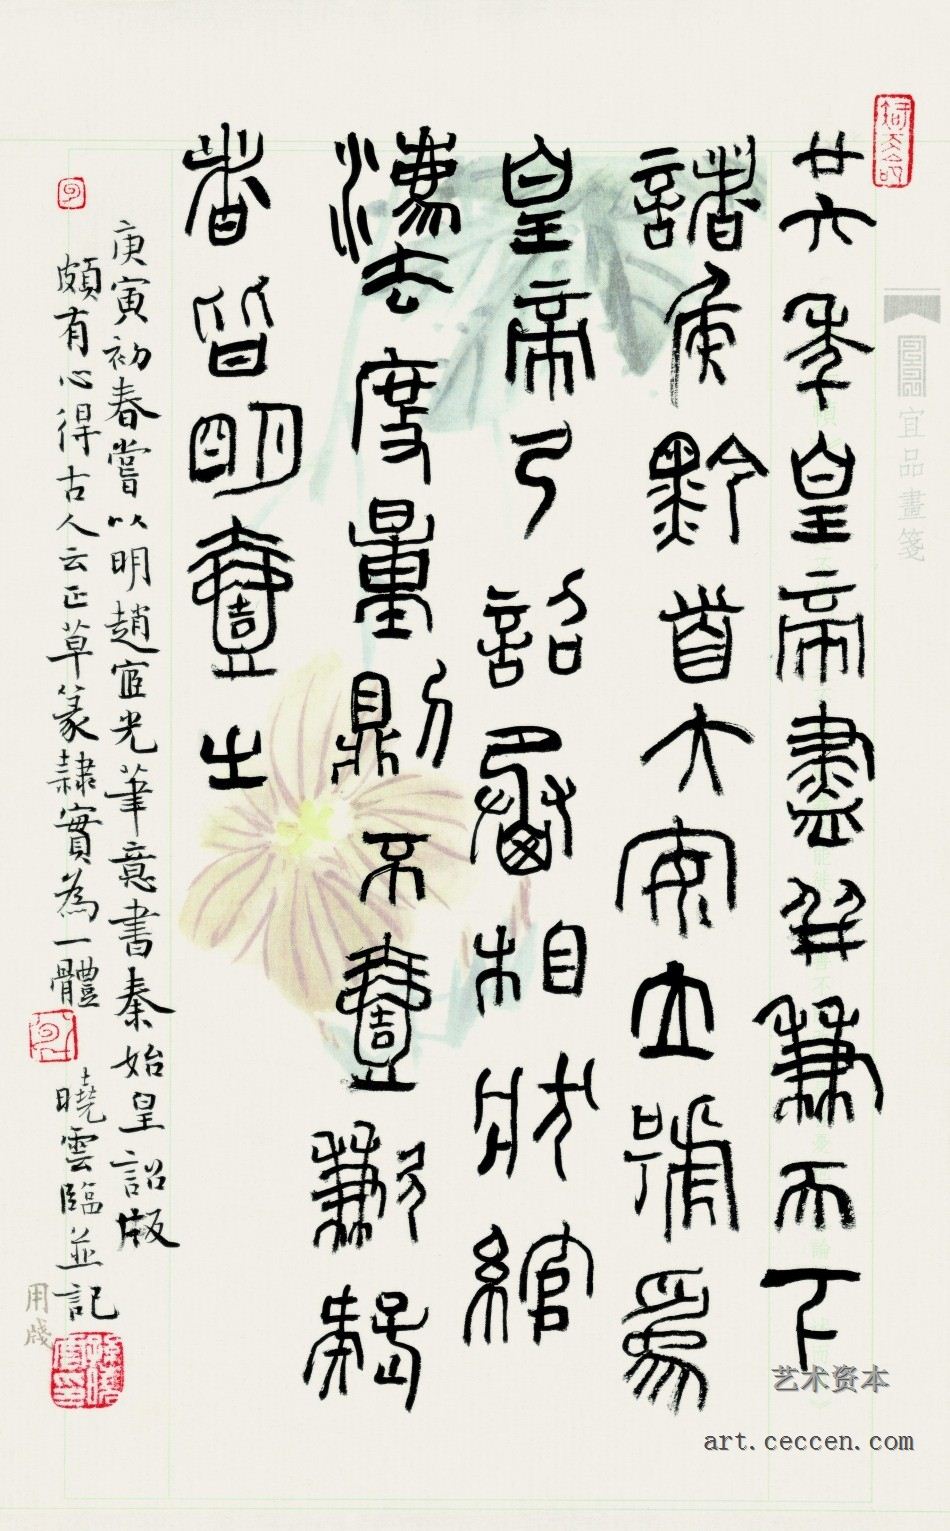 廿六年皇帝盡并兼天下
諸矦黔首大安立號爲
皇帝乃詔丞相狀綰
灋法度量則不壹歉制
者皆明壹之
庚寅初春嘗以明趙宧光筆意書秦始皇詔版
頗有心得古人云正草篆隸實為一體 曉雲臨並記
宜品畫箋
用牋
艺术资本
art.ceccen.com